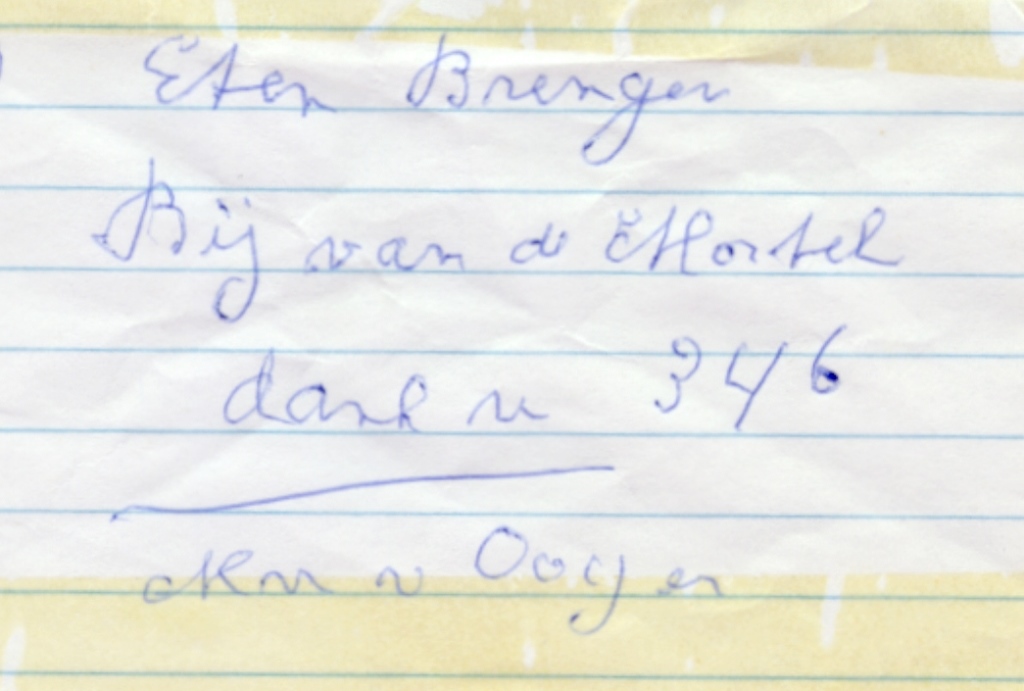 Eten Brengen
Bij van d Hortel
dank u 346
v Ooyen